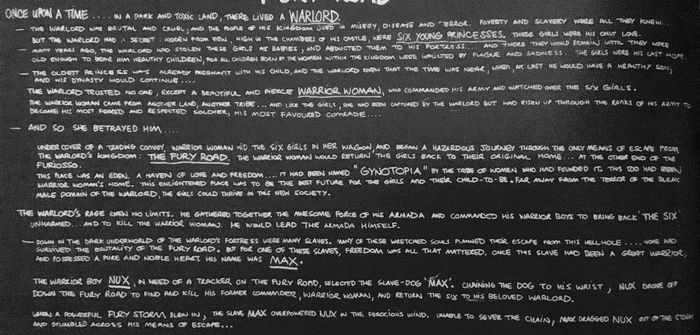 FURY ROAD
ONCE UPON A TIME .... IN A DARK AND TOXIC LAND, THERE LIVED A WARLORD.
— THE WARLORD WAS BRUTAL AND CRUEL, AND THE PEOPLE OF HIS KINGDOM LIVED IN MISERY, DISEASE AND TERROR. POVERTY AND SLAVERY WERE ALL THEY KNEW...
BUT THE WARLORD HAD A SECRET: HIDDEN FROM VIEW, HIGH IN THE CHAMBERS OF HIS CASTLE, WERE SIX YOUNG PRINCESSES. THESE GIRLS WERE HIS ONLY LOVE.
— MANY YEARS AGO, THE WARLORD HAD STOLEN THESE GIRLS AS BABIES, AND ABDUCTED THEM TO HIS FORTRESS... AND THERE THEY WOULD REMAIN UNTIL THEY WERE
OLD ENOUGH TO BEAR HIM HEALTHY CHILDREN, FOR ALL CHILDREN BORN OF THE WOMEN WITHIN THE KINGDOM WERE INFLICTED BY PLAGUE AND SADNESS. THE GIRLS WERE HIS LAST HOPE.
— THE OLDEST PRINCESS WAS ALREADY PREGNANT WITH HIS CHILD, AND THE WARLORD KNEW THAT THE TIME WAS NEAR, WHEN AT LAST HE WOULD HAVE A HEALTHY SON;
AND HIS DYNASTY WOULD CONTINUE....
THE WARLORD TRUSTED NO ONE, EXCEPT A BEAUTIFUL AND FIERCE WARRIOR WOMAN, WHO COMMANDED HIS ARMY AND WATCHED OVER THE SIX GIRLS.
THE WARRIOR WOMAN CAME FROM ANOTHER LAND, ANOTHER TRIBE... AND LIKE THE GIRLS, SHE HAD BEEN CAPTURED BY THE WARLORD BUT HAD RISEN UP THROUGH THE RANKS OF HIS ARMY TO
BECOME HIS MOST FEARED AND RESPECTED SOLDIER, HIS MOST FAVOURED COMRADE....
— AND SO SHE BETRAYED HIM....
UNDER COVER OF A TRADING CONVOY, WARRIOR WOMAN HID THE SIX GIRLS IN HER WAGON, AND BEGAN A HAZARDOUS JOURNEY THROUGH THE ONLY MEANS OF ESCAPE FROM
THE WARLORD'S KINGDOM: THE FURY ROAD. THE WARRIOR WOMAN WOULD RETURN THE GIRLS BACK TO THEIR ORIGINAL HOME... AT THE OTHER END OF THE
FURIOSO.
THIS PLACE WAS AN EDEN. A HAVEN OF LOVE AND FREEDOM.... IT HAD BEEN NAMED "GYNOTOPIA" BY THE TRIBE OF WOMEN WHO HAD FOUNDED IT. THIS TOO HAD BEEN
WARRIOR WOMAN'S HOME. THIS ENLIGHTENED PLACE WAS TO BE THE BEST FUTURE FOR THE GIRLS AND THEIR CHILD-TO-BE. FAR AWAY FROM THE TERROR OF THE BLEAK
MALE DOMAIN OF THE WARLORD, THE GIRLS COULD THRIVE IN THIS NEW SOCIETY.
THE WARLORD'S RAGE KNEW NO LIMITS. HE GATHERED TOGETHER THE AWESOME FORCE OF HIS ARMADA AND COMMANDED HIS WARRIOR BOYS TO BRING BACK THE SIX
UNHARMED... AND TO KILL THE WARRIOR WOMAN. HE WOULD LEAD THE ARMADA HIMSELF.
— DOWN IN THE DARK UNDERWORLD OF THE WARLORD'S FORTRESS WERE MANY SLAVES. MANY OF THESE WRETCHED SOULS PLANNED THEIR ESCAPE FROM THIS HELL-HOLE.... NONE HAD
SURVIVED THE BRUTALITY OF THE FURY ROAD. BUT FOR ONE OF THESE SLAVES, FREEDOM WAS ALL THAT MATTERED. ONCE THIS SLAVE HAD BEEN A GREAT WARRIOR,
AND POSSESSED A PURE AND NOBLE HEART. HIS NAME WAS MAX.
THE WARRIOR BOY NUX, IN NEED OF A TRACKER ON THE FURY ROAD, SELECTED THE SLAVE-DOG 'MAX'. CHAINING THE DOG TO HIS WRIST, NUX DROVE OFF
DOWN THE FURY ROAD TO FIND AND KILL HIS FORMER COMMANDER, WARRIOR WOMAN, AND RETURN THE SIX TO HIS BELOVED WARLORD.
WHEN A POWERFUL FURY STORM BLEW IN, THE SLAVE MAX OVERPOWERED NUX IN THE FEROCIOUS WIND. UNABLE TO SEVER THE CHAIN, MAX DRAGGED NUX OUT OF THE STORM
AND STUMBLED ACROSS HIS MEANS OF ESCAPE...